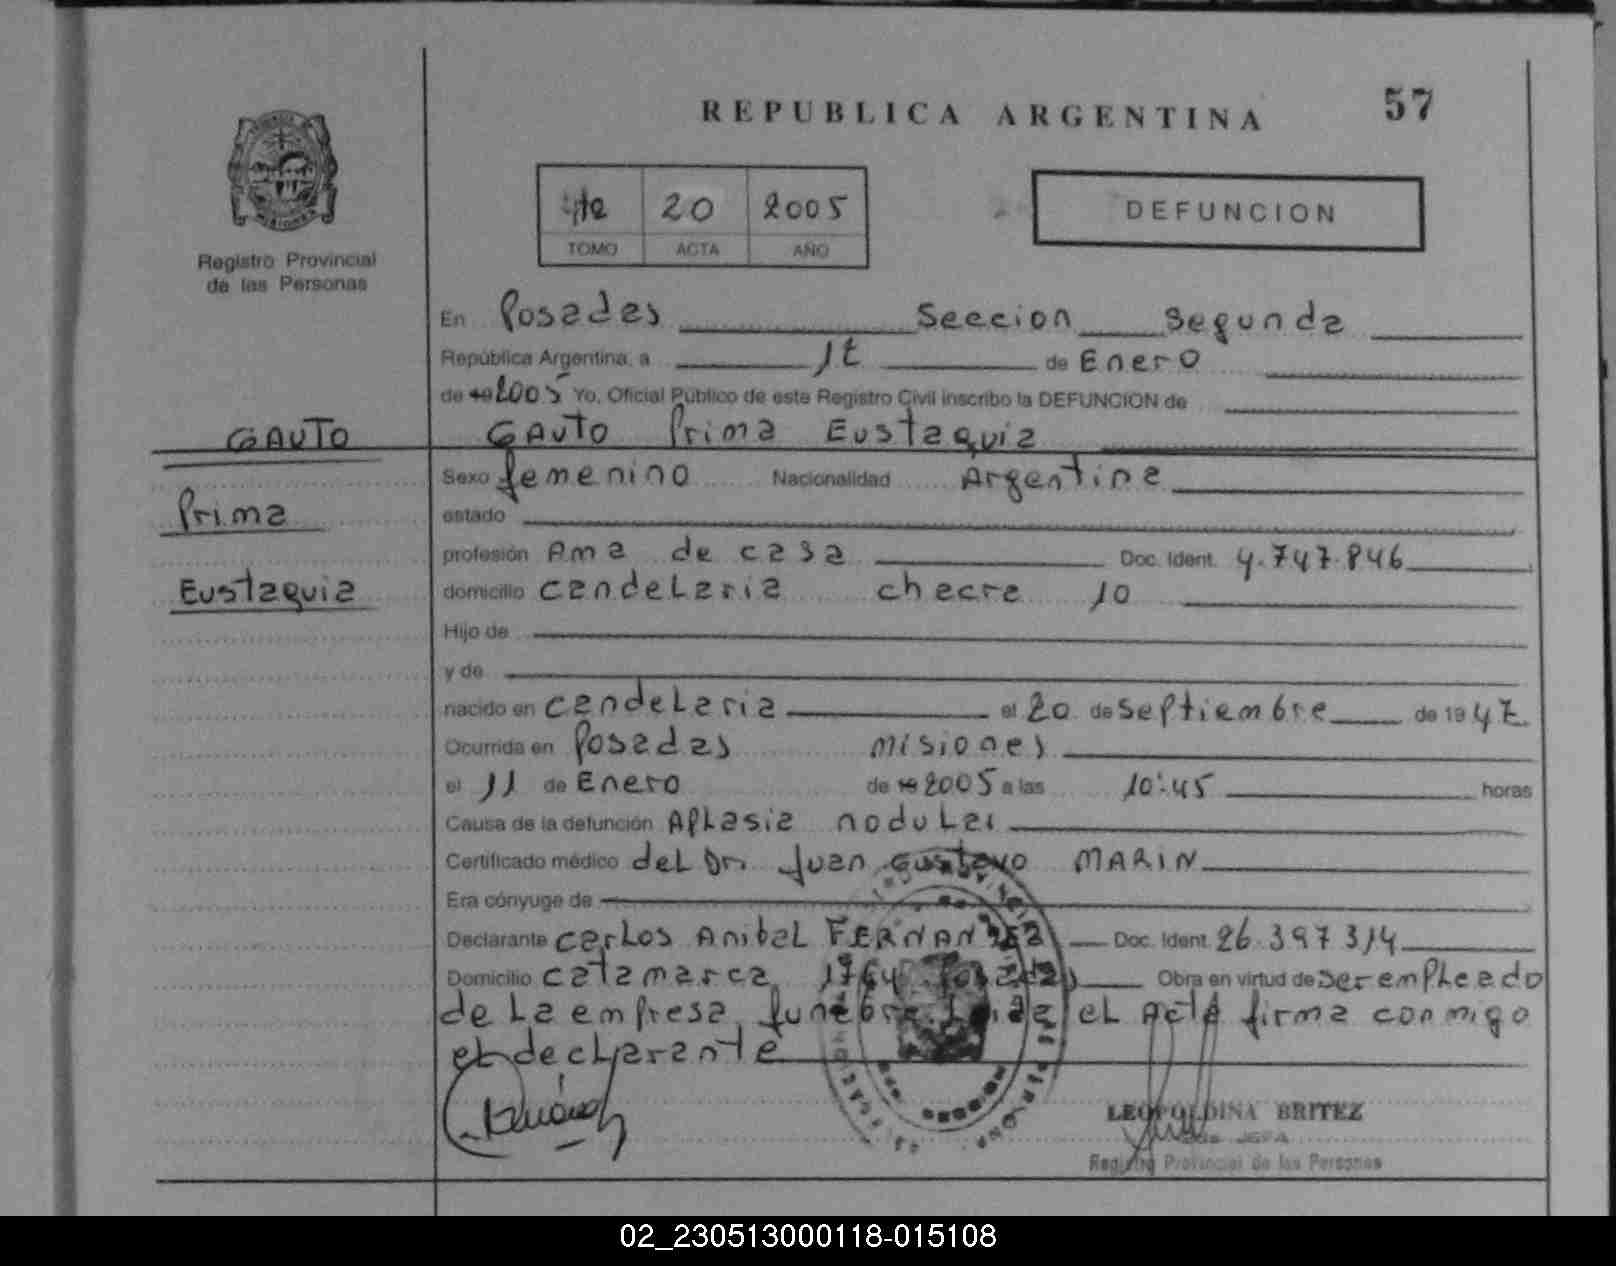 REPUBLICA ARGENTINA 57
1te 20 2005
TOMO ACTA AÑO
DEFUNCION
Registro Provincial
de las Personas
En Posadas Seccion Segunda
República Argentina, a 17 de Enero
de 19 2005 Yo, Oficial Público de este Registro Civil inscribo la DEFUNCION de
GAUTO
GAUTO Prima Eustaquia
Prima
Eustaquia
Sexo femenino Nacionalidad Argentina
estado
profesión Ama de casa Doc. Ident. 4.747.846
domicilio candelaria chacra 10
Hijo de
y de
nacido en candelaria el 20 de septiembre de 19 47
Ocurrida en Posadas misiones
el 11 de Enero de 19 2005 a las 10:45 horas
Causa de la defunción Aplasia nodular
Certificado médico del Dr. Juan Gustavo MARIN
Era cónyuge de
Declarante carlos Anibal FERNANDEZ Doc. Ident. 26.397.314
Domicilio catamarca 1764 Posadas Obra en virtud de ser empleado
de la empresa funebre. Leida el Acta firma conmigo
el declarante
LEOPOLDINA BRITEZ
JEFA
Registro Provincial de las Personas
02_230513000118-015108